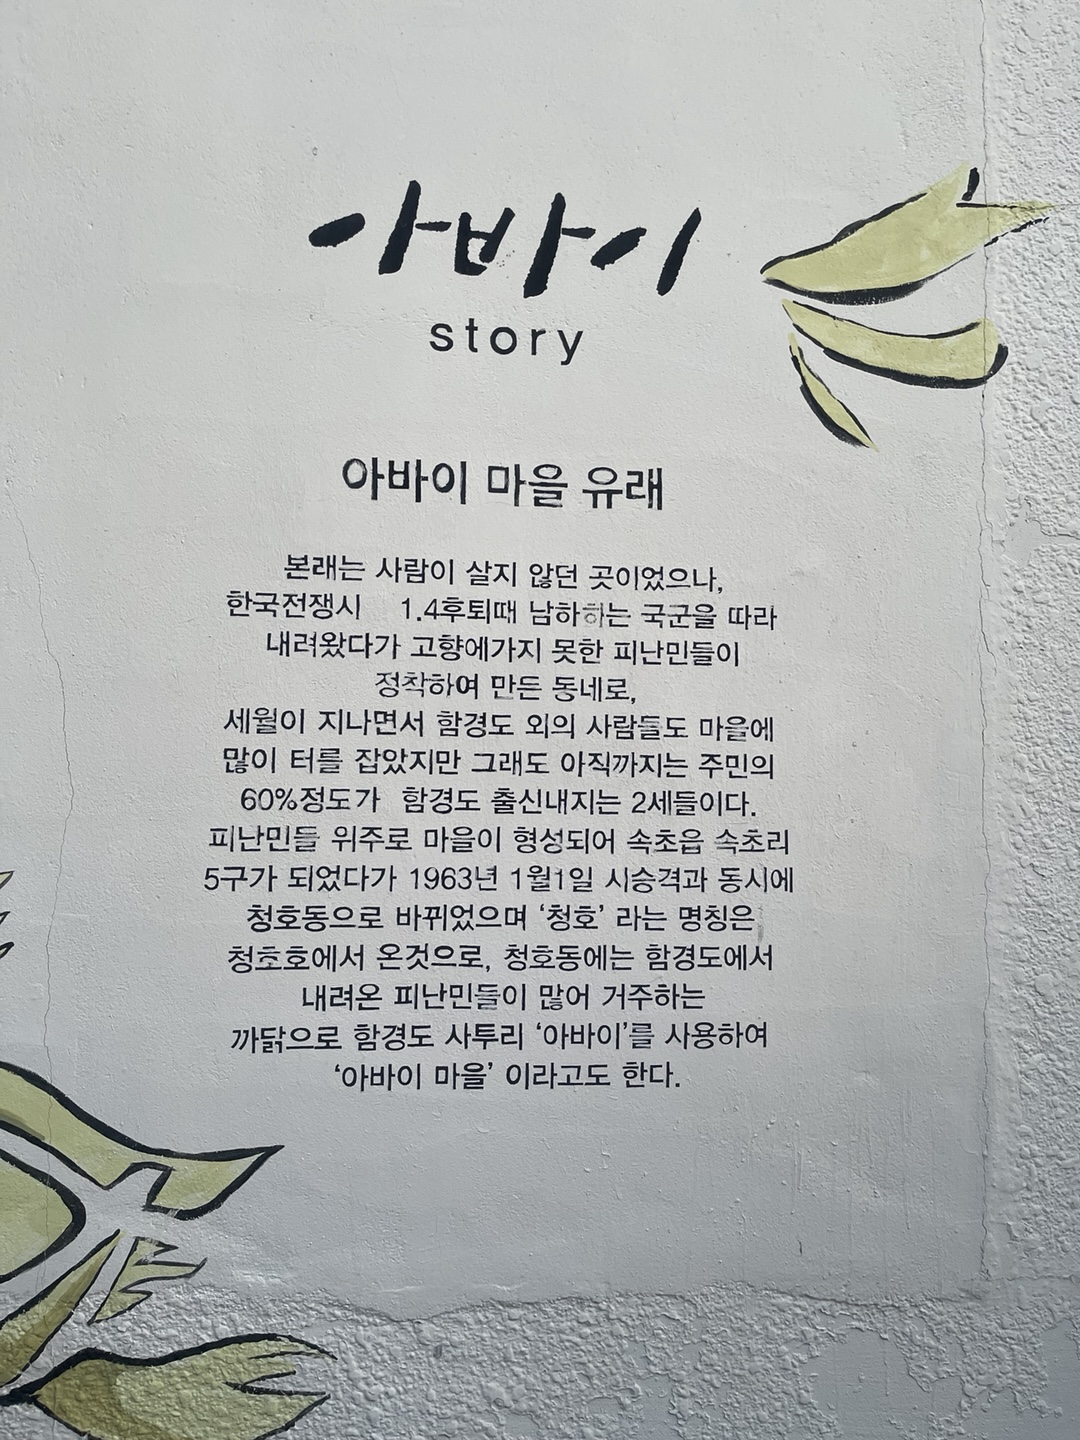 아바이
story
아바이 마을 유래
본래는 사람이 살지 않던 곳이었으나,
한국전쟁시 1.4후퇴때 남하하는 국군을 따라
내려왔다가 고향에가지 못한 피난민들이
정착하여 만든 동네로,
세월이 지나면서 함경도 외의 사람들도 마을에
많이 터를 잡았지만 그래도 아직까지는 주민의
60%정도가 함경도 출신내지는 2세들이다.
피난민들 위주로 마을이 형성되어 속초읍 속초리
5구가 되었다가 1963년 1월1일 시승격과 동시에
청호동으로 바뀌었으며 ‘청호’ 라는 명칭은
청초호에서 온것으로, 청호동에는 함경도에서
내려온 피난민들이 많어 거주하는
까닭으로 함경도 사투리 ‘아바이’를 사용하여
‘아바이 마을’ 이라고도 한다.